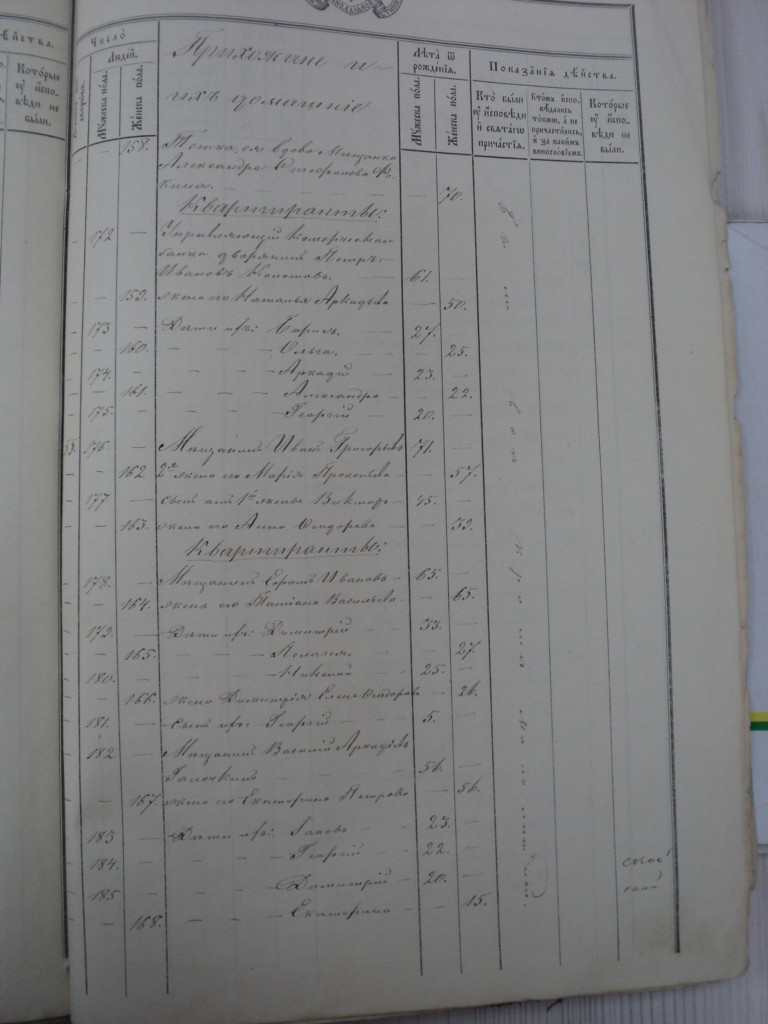 Число́
Люде́й.
Му́жеска по́ла.
Же́нска по́ла.
Прихожане и
ихъ домашніе
Лѣ́та ѿ
рожде́нія.
Му́жеска по́ла.
Же́нска по́ла.
Показа́нія дѣ́йства.
Кто̀ бы́ли
ꙋ҆ и҆сповѣ́ди
и҆ свята́гѡ
прича́стія.
Кото́рые
ꙋ҆ и҆спо-
вѣ́ди не
бы́ли.
дѣ́йства.
Кото́рые
ꙋ҆ и҆спо-
вѣ́ди не
бы́ли.
158. Тетка ея вдова Мѣщанка
Александра
70.
Квартиранты:
172 Управляющій Комерческаго
банка дворянинъ Петръ
Ивановъ 61.
159. жена его Наталья Аркадьева 50.
173 Дѣти ихъ: Борисъ. 27.
160. Ольга. 25.
174. Аркадій 23.
161. Александра 22.
175. Георгій 20.
55. 176. Мѣщанинъ Иванъ Григорьевъ 71.
162 2я жена его Марія Прокопьева 57.
177 сынъ отъ 1й жены Викторъ 45.
163. жена его Анна Ѳеодорова 39.
Квартиранты:
178. Мѣщанинъ Ефремъ Ивановъ 65.
164. жена его Татіана Васильева 65.
179. Дѣти ихъ: Димитрій 33.
165. Пелагія 27
180. Николай 25.
166. жена Димитрія Елена Ѳеодорова 26.
181. Сынъ ихъ Георгій 5.
182 Мѣщанинъ Василій Аркадьевъ
Галочкинъ 56.
167. жена его Екатерина Петрова 56.
183 Дѣти ихъ: Іаковъ 23.
184. Георгій 22.
185 Димитрій 20.
168. Екатерина 15.